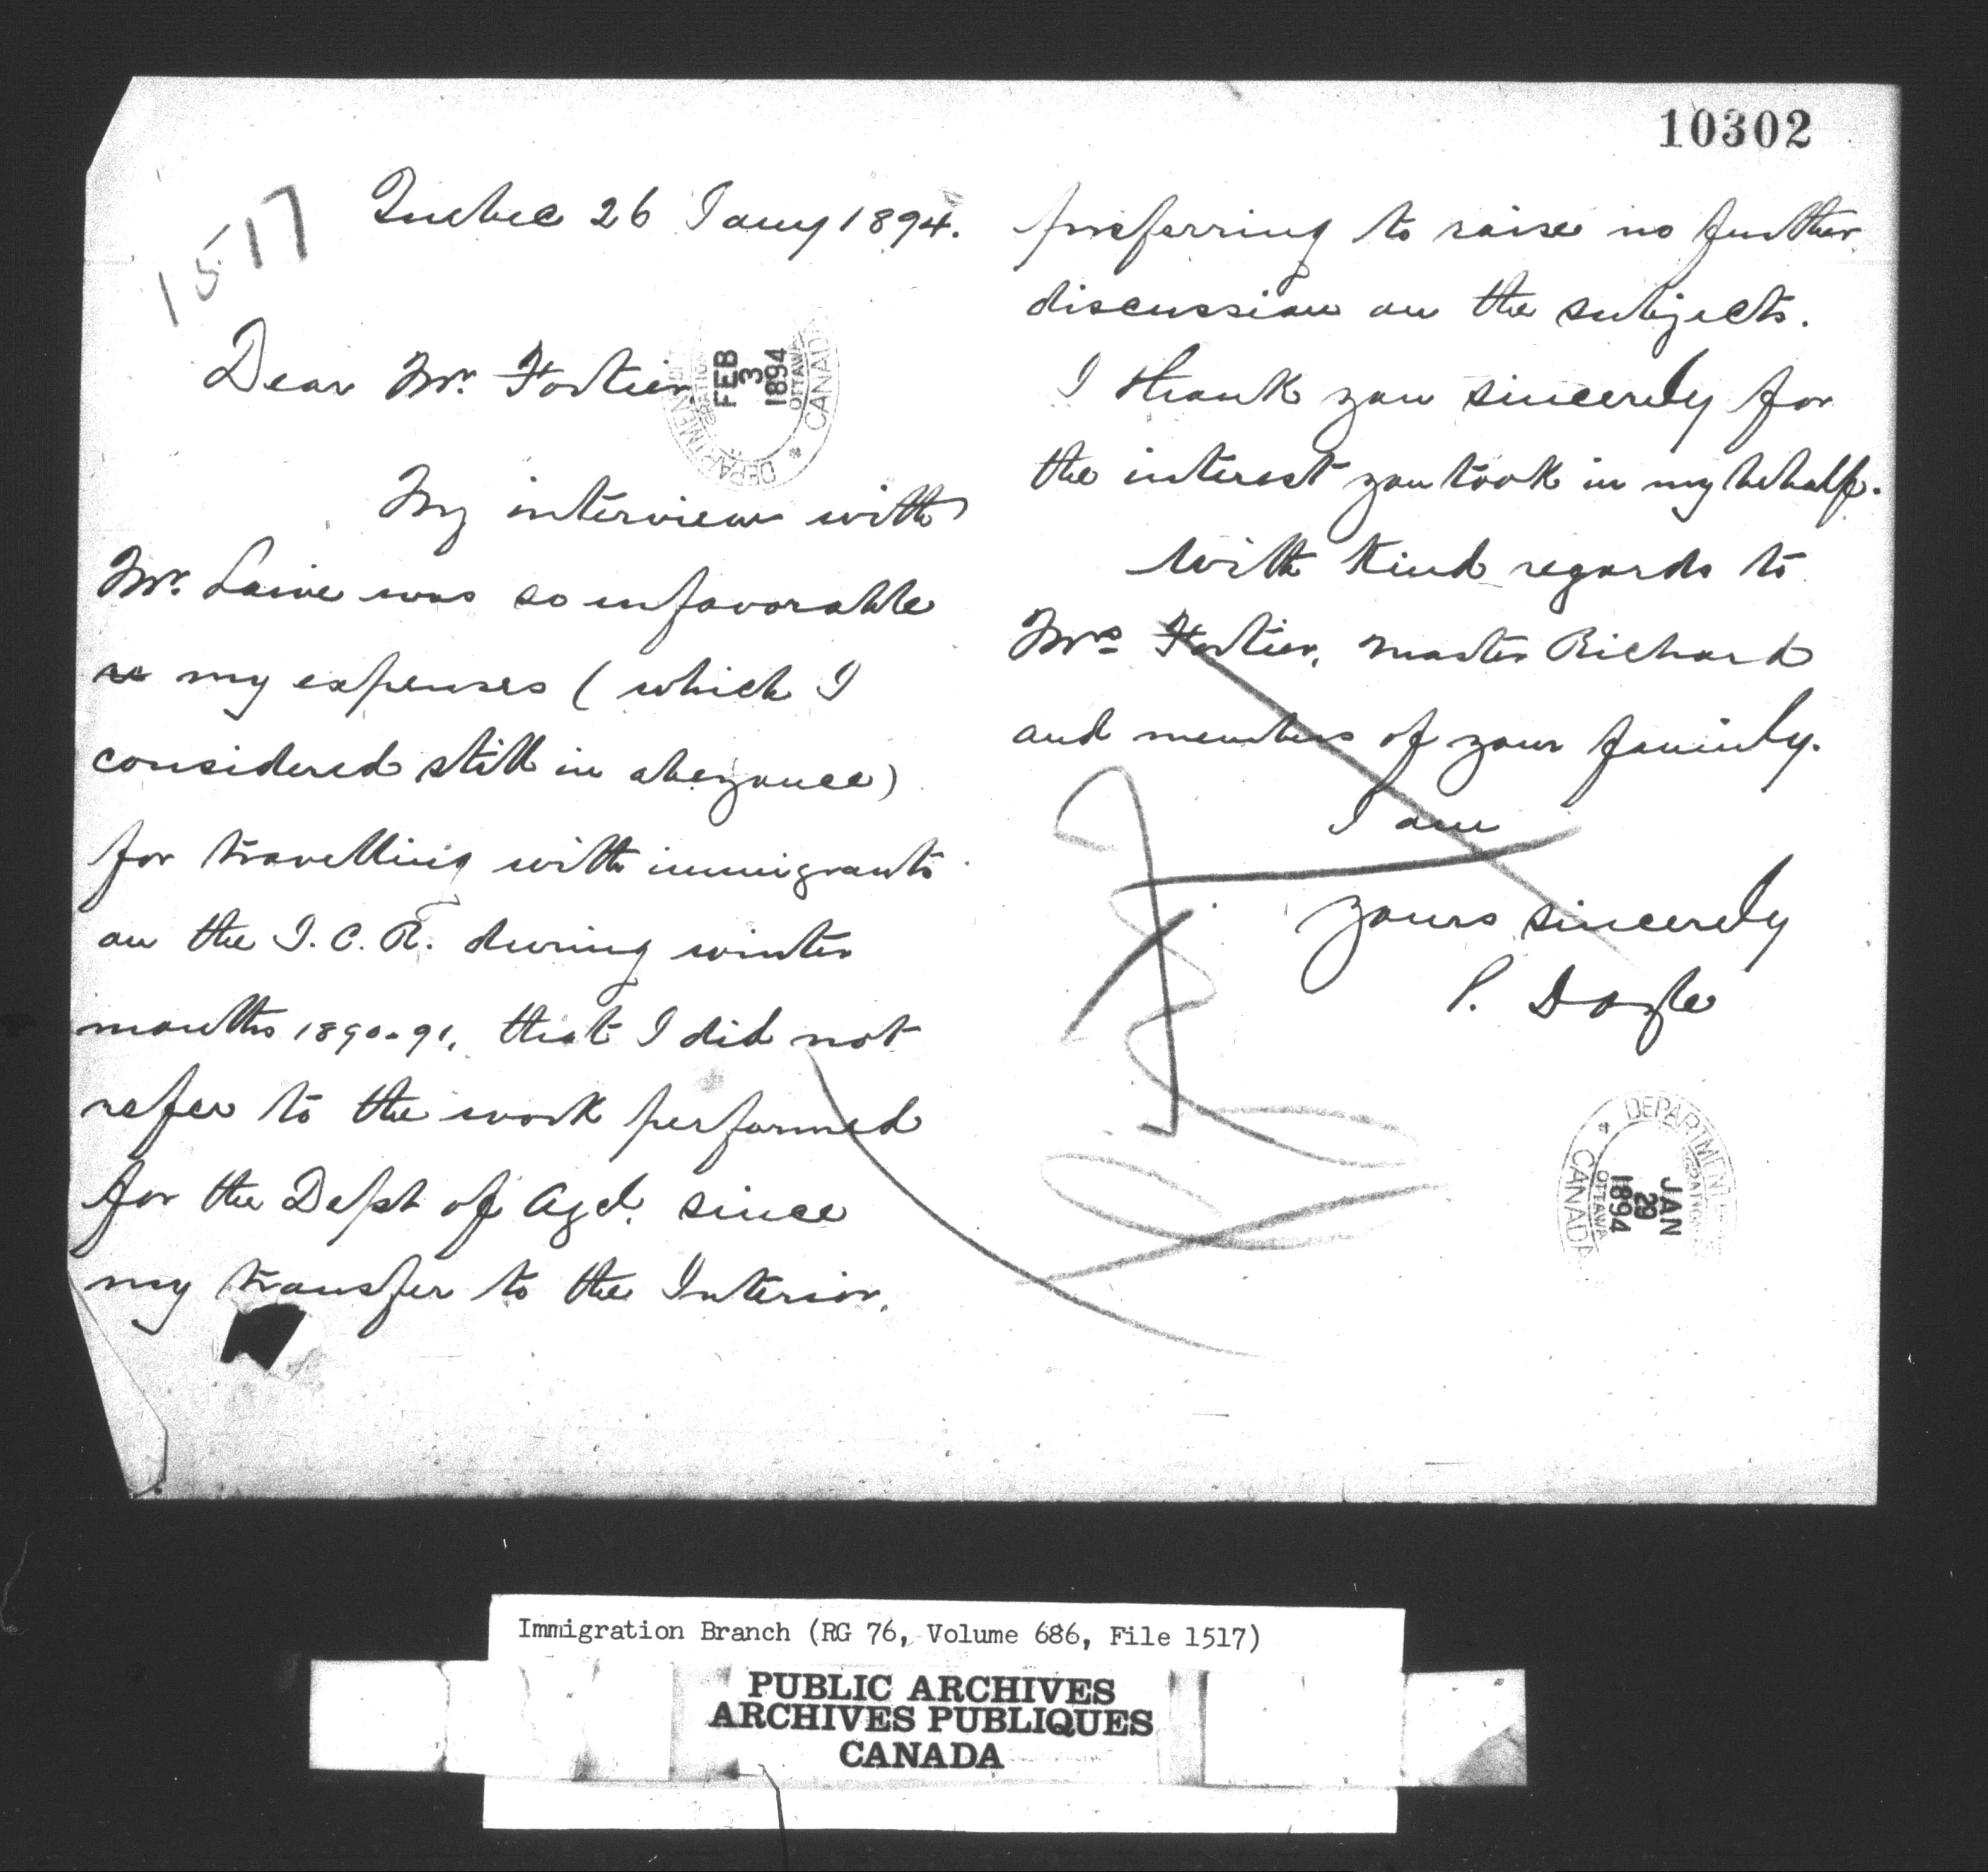 10302
1517
Quebec 26 Jany 1894.
Dear Mr. Fortier
DEPARTMENT
FEB
3
1894
OTTAWA
CANADA
My interview with
Mr. Laive was so unfavorable
re my expenses (which I
considered still in abeyance)
for travelling with immigrants
on the I. C. R. during winter
months 1890-91, that I did not
refer to the work performed
for the Dept of Agcl. since
my transfer to the Interior,
preferring to raise no further
discussion on the subjects.
I thank you sincerely for
the interest you took in my behalf.
With kind regards to
Mrs Fortier, Master Richard
and members of your family.
I am
Yours sincerely
P. Doyle
DEPARTMENT
JAN
29
1894
OTTAWA
CANADA
Immigration Branch (RG 76, Volume 686, File 1517)
PUBLIC ARCHIVES
ARCHIVES PUBLIQUES
CANADA